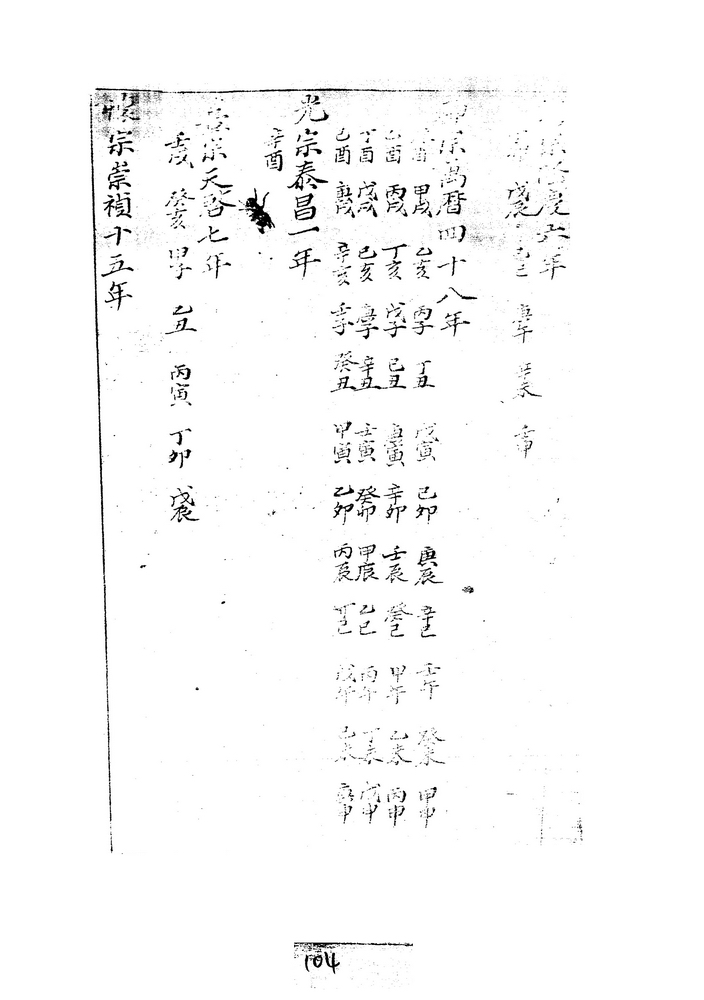 穆宗隆慶六年
丁卯 戊辰 己巳 庚午 辛未 壬申
神宗萬曆四十八年
癸酉 甲戌 乙亥 丙子 丁丑 戊寅 己卯 庚辰 辛巳 壬午 癸未 甲申
乙酉 丙戌 丁亥 戊子 己丑 庚寅 辛卯 壬辰 癸巳 甲午 乙未 丙申
丁酉 戊戌 己亥 庚子 辛丑 壬寅 癸卯 甲辰 乙巳 丙午 丁未 戊申
己酉 庚戌 辛亥 壬子 癸丑 甲寅 乙卯 丙辰 丁巳 戊午 己未 庚申
光宗泰昌一年
辛酉
熹宗天啓七年
壬戌 癸亥 甲子 乙丑 丙寅 丁卯 戊辰
懷宗崇禎十五年
104